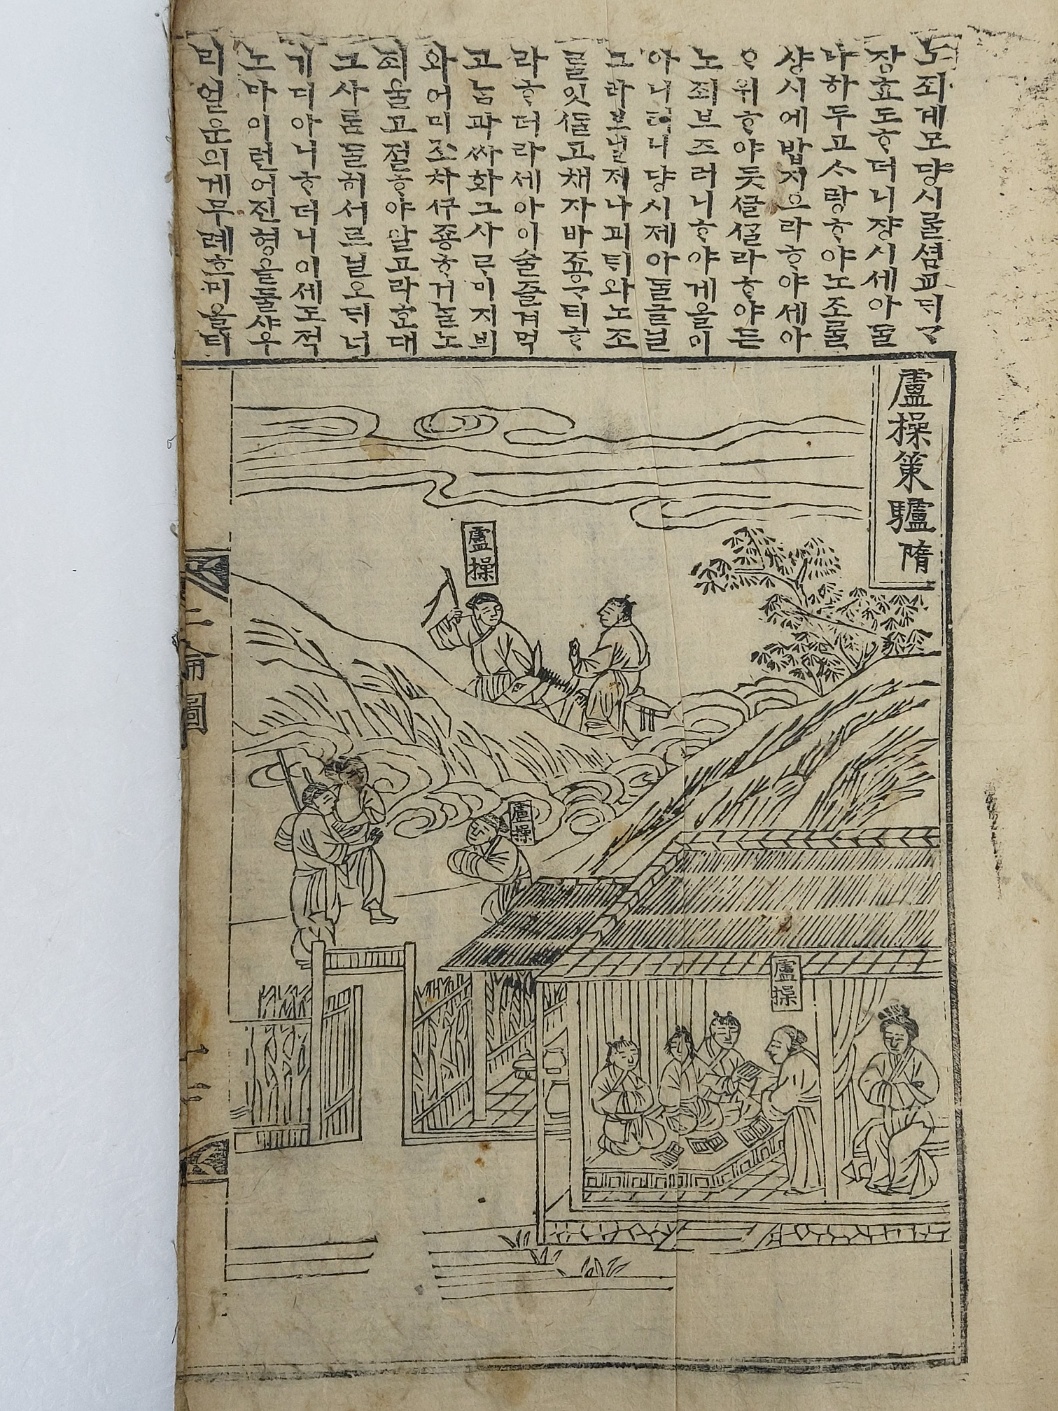 노죄계모댱시를셤교ᄃᆡᄀᆞ
장효도ᄒᆞ더니쟝시세아ᄃᆞᆯ
나하두고ᄉᆞ랑ᄒᆞ야노조를
샹시예밥지으라ᄒᆞ야세아
ᄋᆞ위ᄒᆞ야돗ᄭᆞᆯ셜라ᄒᆞ야든
노죄브즈러니ᄒᆞ야게을이
아니터니댱시제아ᄃᆞᆯ글닐
그라브낼제나괴ᄐᆡ와노조
ᄅᆞᆯ잇글고채자바죠ᇰᄀᆞ티ᄒᆞ
라ᄒᆞ더라세아이술즐겨먹
고ᄂᆞᆷ과싸화그사ᄅᆞ미지븨
와어미조차구죵ᄒᆞ거ᄂᆞᆯ노
죄울고절ᄒᆞ야말고라ᄒᆞᆫ대
그사ᄅᆞᆷᄃᆞᆯ히서르닐오ᄃᆡ너
기디아니ᄒᆞ더니이세도적
노마이런어진형을둘샤우
리얼운의게무례호미올티
盧操策驢 隋
盧操
盧操
盧操
二倫圖